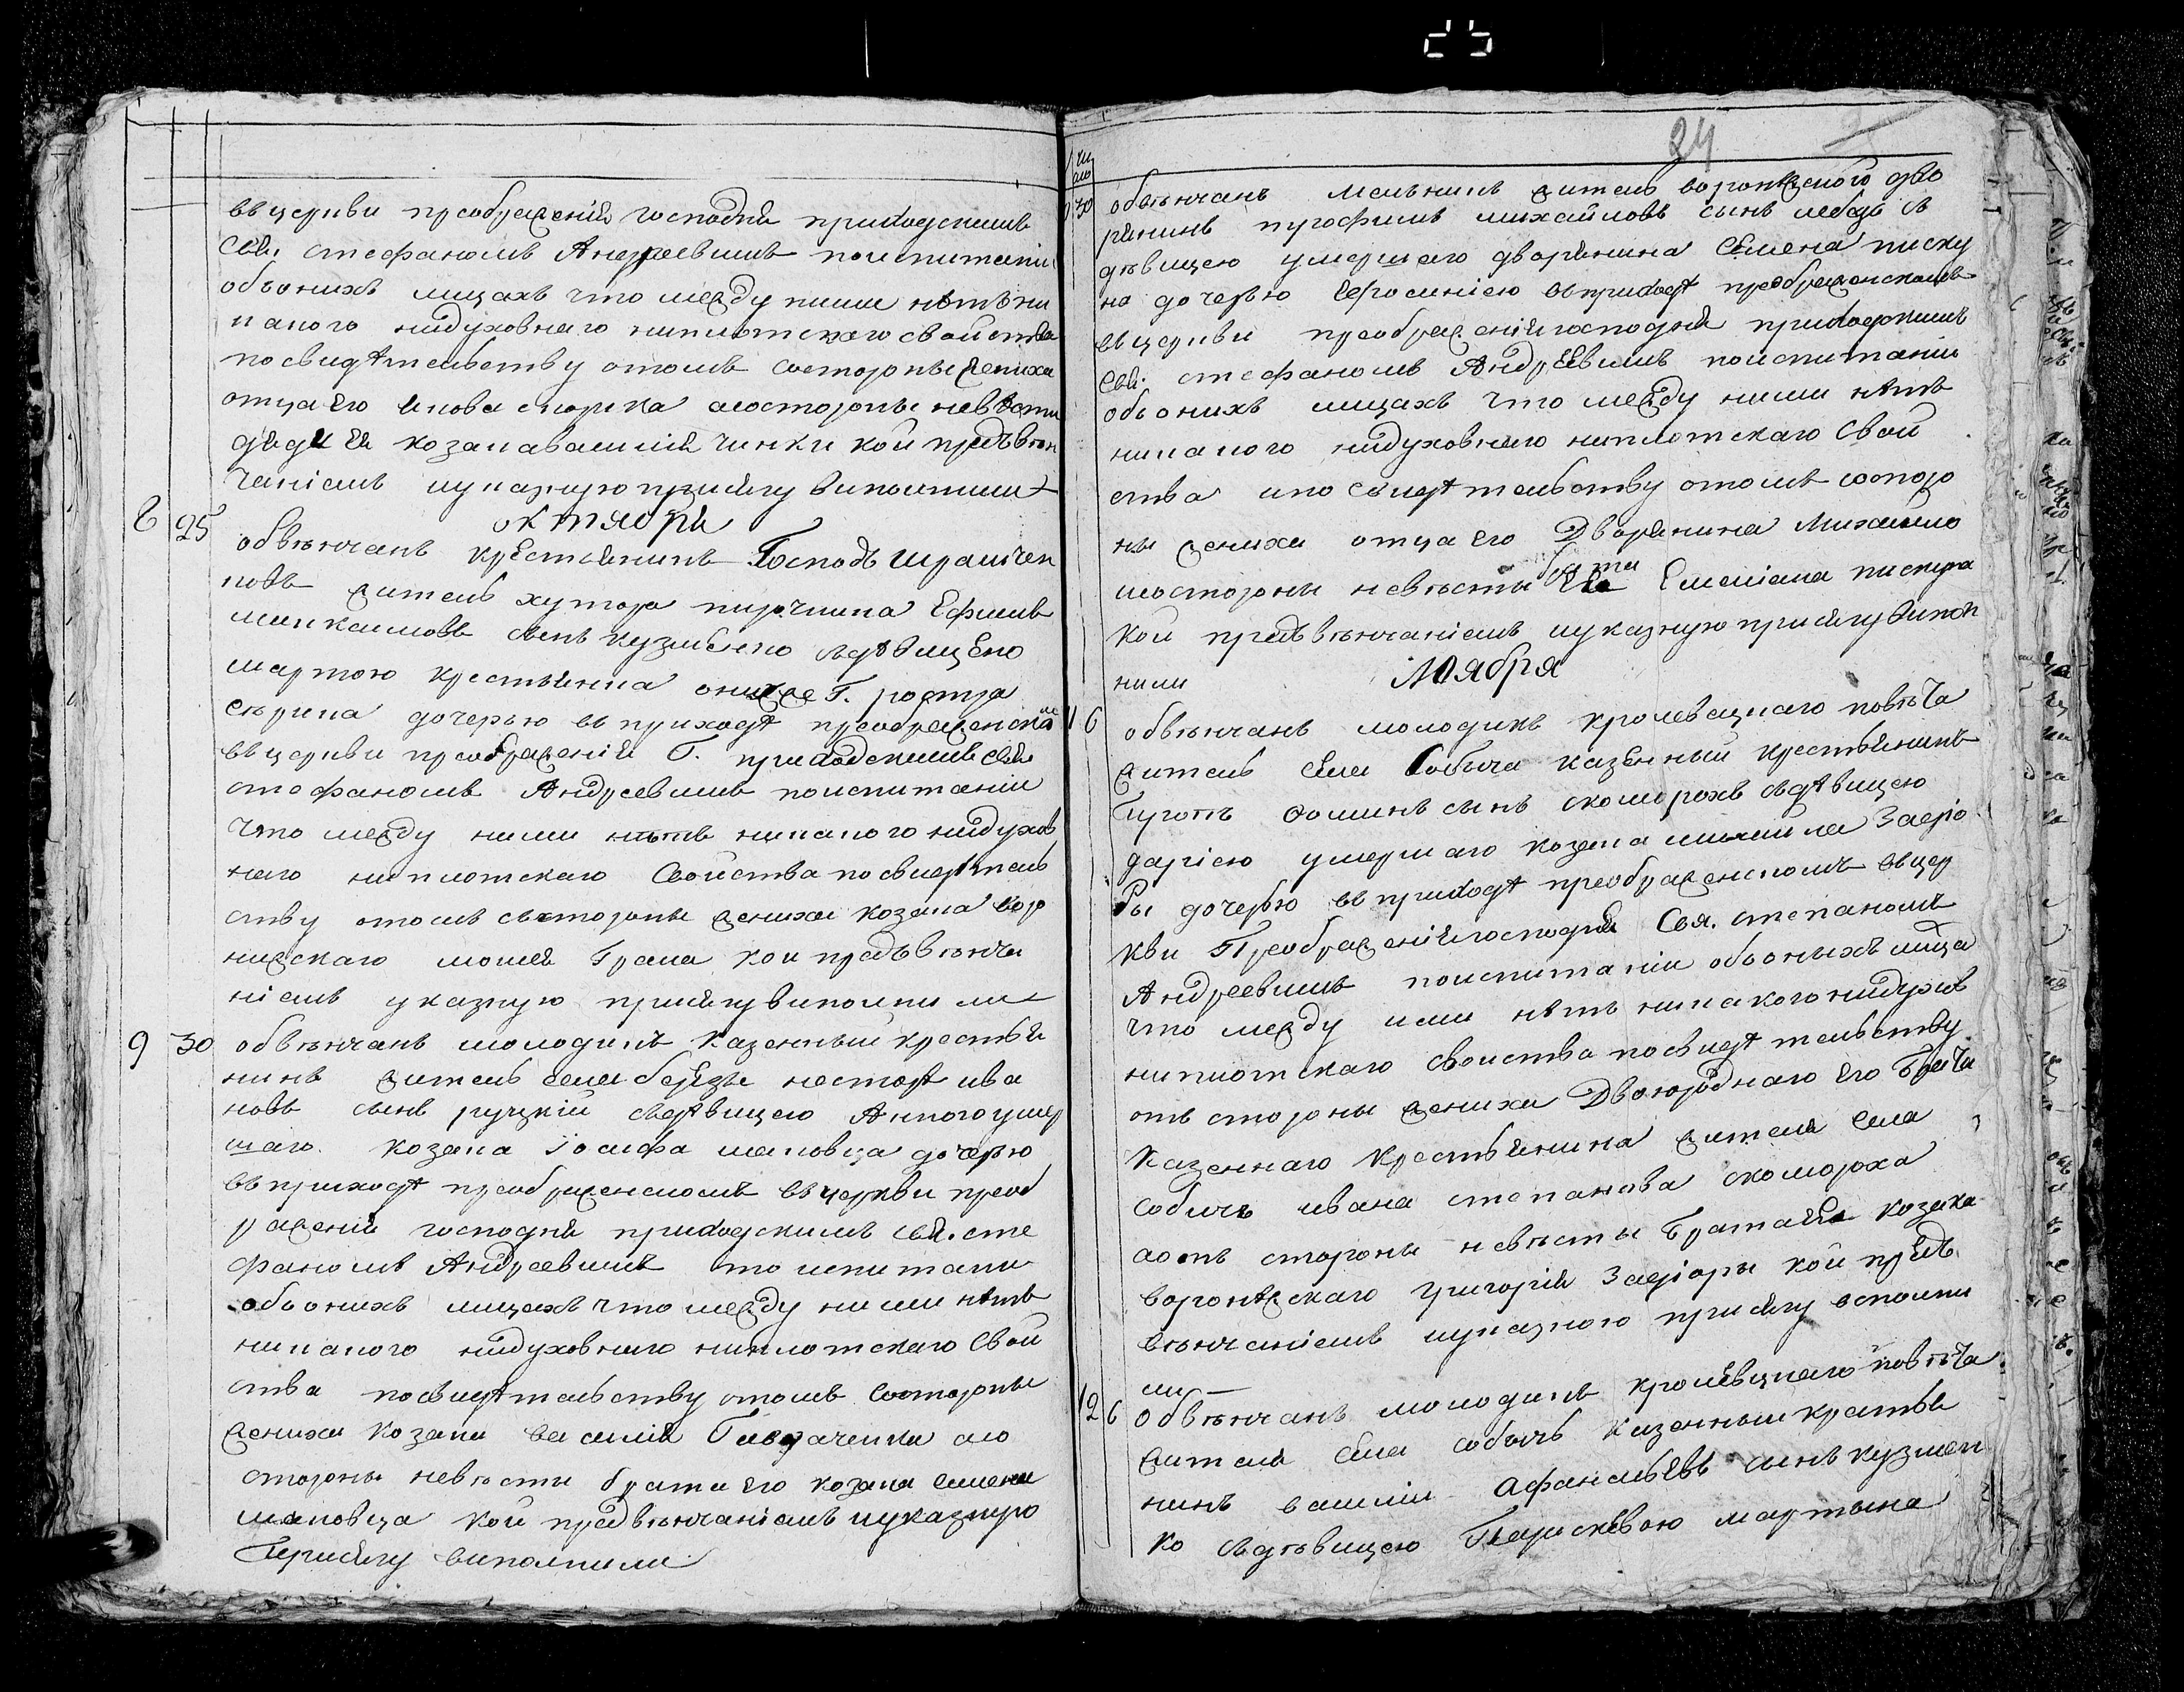 вьцеркви преображенія господня приходскимъ
Свя. стефаномъ Андреевимъ поиспитаніи
обьонихъ лицахъ что между ними нѣтъ ни
накого нидуховнаго ниплотскаго свойства
посвидѣтельству отомъ состороны жениха
отца его состороны невѣсти
дядя ея козака кои предъвѣн
чаніемъ иуказную присягу виполнили
октября
8 25 обвѣнчанъ крестянинъ Господъ
житель хутора Ефимъ
сынъ кузменко сьдѣвицею
мартою крестьянина Г.
дочерью въ приходѣ преображенскомъ
вьцеркви преображенія Г. приходскимъ свя
стефаномъ Андреевимъ поиспитаніи
что между ними нѣтъ никакого нидухов
наго ниплотскаго Свойства посвидѣтель
ству отомъ сьстороны жениха козака вор
нижскаго кои предъвѣнча
ніемъ указную присягу виполнили
9 30 обвѣнчанъ молодикъ казенный крестья
нинъ житель села березы несторъ ива
новъ сынъ руцкій сьдѣвицею Анною умер
шаго козака Іосифа маковца дочерю
вьприходѣ преображенскомъ вьцеркви преоб
раженія господня приходскимъ свя. сте
фаномъ Андреевимъ по испитании
обьонихъ лицахъ что между ними нѣтъ
никакого нидуховнаго ниплотскаго Свой
ства посвидѣтельству отомъ состороны
жениха козака василія аю
стороны невѣсти брата его козака семена
маковца кои предвѣнчаніемъ иуказную
Присягу виполнили
24
чи
сло
30 обвѣнчанъ житель воронѣжского дво
рянинъ трофимъ михайловъ сынъ лебедь съ
дѣвицею умершаго дворянина Семена писку
на дочерью Ефросиніею вьприходѣ преображенскомъ
вьцеркви преображеніягосподня приходскимъ
Свя. стефаномъ Андреевимъ поиспитаніи
обьонихъ лицахъ что между ними нѣтъ
никакого нидуховнаго ниплотскаго Свой
ства ипо свидѣтельству отомъ состоро
ны жениха отца его Дворянина Михайло
иостороны невѣсты брата Ея Емеліана пискуна
кои предъвѣнчаніемъ иуказную присягу випол
нили Ноября
11 6 обвѣнчанъ молодикъ кролевецкаго повѣта
житель села Собича казенный крестьянинъ
сынъ скоморохъ сьдѣвицею
дарією умершаго козака михайла
дочерью вьприходѣ преображенскомъ вьцер
кви Преображеніягосподня Свя. степаномъ
Андреевимъ поиспитаніи обьоныхъ лица
что между ими нѣтъ никакого нидухов
ниплотскаго своиства посвидѣтельству
отъ стороны жениха Двоюроднаго его Брата
Казеннаго Крестьянина жителя села
собичъ ивана степанова скомороха
аотъ стороны невѣсты Братаея козака
воронѣжскаго григорія кои предъ
вѣнчаніемъ иуказною присягу всполни
ли
12 6 Обвѣнчанъ молодикъ кролевецкаго повѣта
жителя села собичъ казенныи крестья
нинъ василіи афанасьевъ сынъ кузмен
ко сьдѣвицею Парискевою мартына